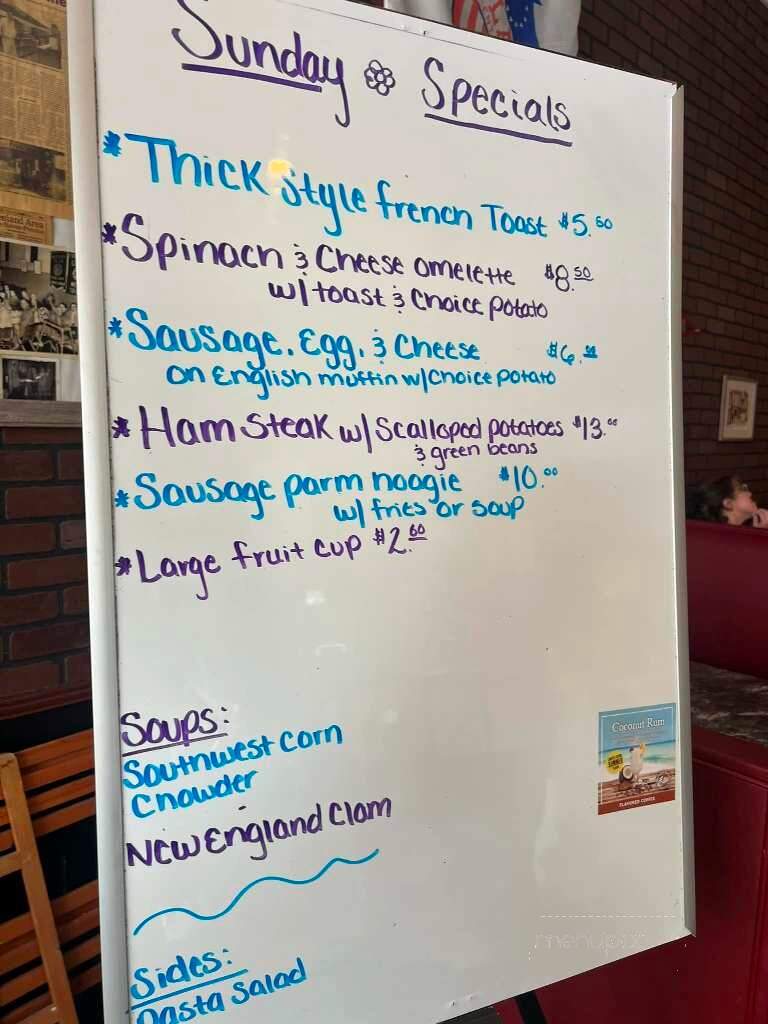 Sunday Specials
* Thick Style french Toast $5.50
* Spinach & Cheese omelette $8.50
w/ toast & Choice potato
* Sausage, Egg, & Cheese $6.
on English muffin w/ Choice potato
* Ham Steak w/ Scalloped potatoes $13.00
& green beans
* Sausage parm hoagie $10.00
w/ fries or soup
* Large fruit cup $2.60
Soups:
Southwest Corn
Chowder
New England Clam
Sides:
Pasta Salad
Coconut Rum
FLAVORED COFFEE
menupix